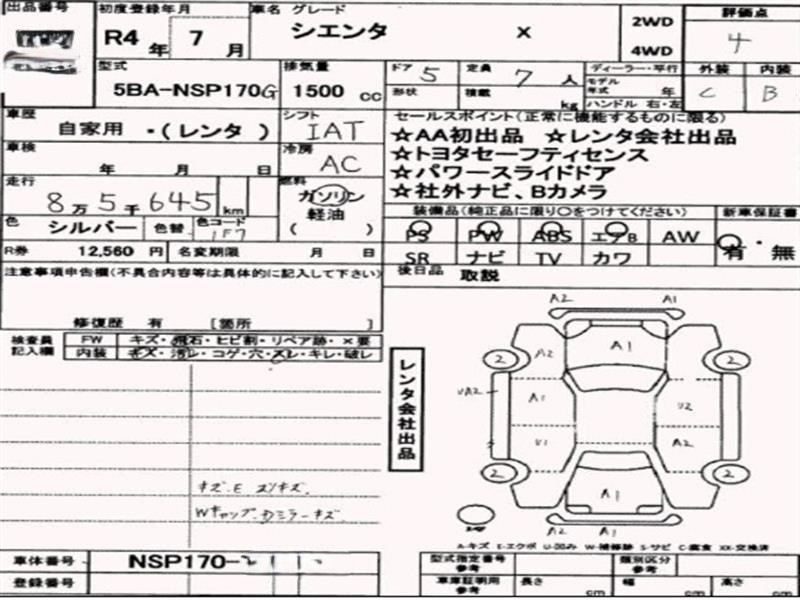 出品番号 初度登録年月 車名 グレード 2WD 4WD 評価点
R4 年 7 月 シエンタ X 4
型式 排気量 ドア 5 定員 7 人 ディーラー・平行 外装 内装
5BA-NSP170G 1500 cc 形状 積載 kg モデル年式 年 ハンドル 右・左 C B
車歴 自家用 ・(レンタ) シフト IAT セールスポイント(正常に機能するものに限る)
☆AA初出品 ☆レンタ会社出品
車検 年 月 日 冷房 AC ☆トヨタセーフティセンス
☆パワースライドドア
走行 8万5千645 km 燃料 ガソリン 軽油 ( ) ☆社外ナビ、Bカメラ
色 シルバー 色替 色コード 1F7 装備品(純正品に限り○をつけてください) 新車保証書
PS PW ABS エアB AW 有・無
R券 12,560 円 名変期限 月 日 SR ナビ TV カワ
注意事項申告欄(不具合内容等は具体的に記入して下さい) 後日品 取説
修復歴 有 [箇所 ]
検査員記入欄 FW キズ・飛石・ヒビ割・リペア跡・×要
内装 キズ・汚レ・コゲ・穴・スレ・キレ・破レ
レンタ会社出品
A2 A1
2 A2 A1 2
UA2 A1 U2
U1 A2
2 A1 2
A2 A1
キズ.E スリキズ.
Wキャップ.Dミラーキズ.
A-キズ E-エクボ U-凹み W-補修跡 S-サビ C-腐食 XX-交換済
車体番号 NSP170-
登録番号
型式指定番号 参考 類別区分 参考
車庫証明用 参考 長さ cm 幅 cm 高さ cm